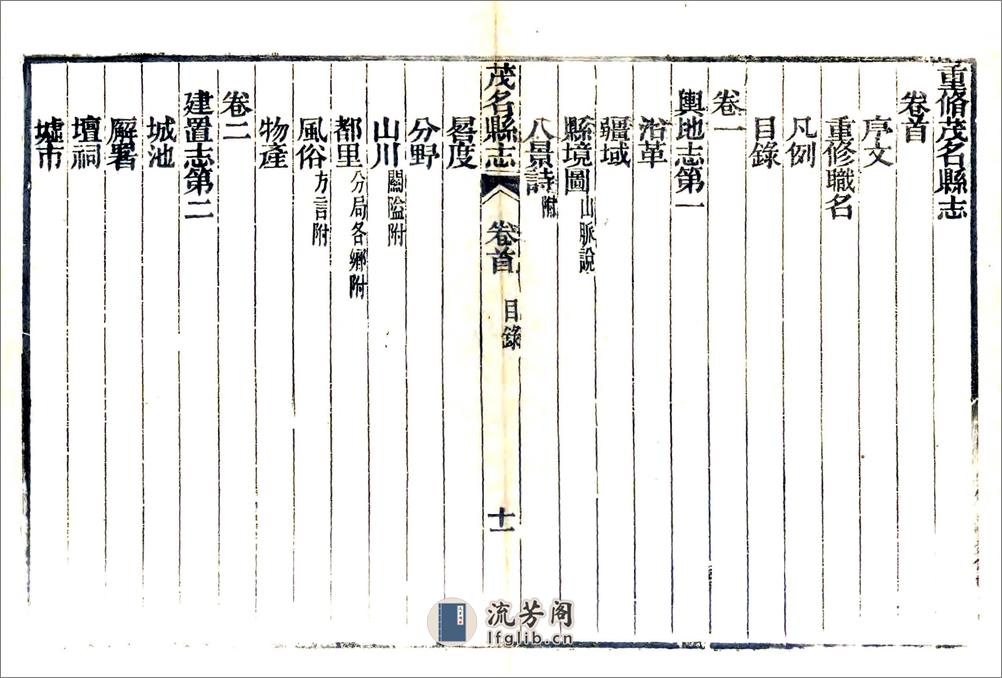 重脩茂名縣志
卷首
序文
重修職名
凡例
目錄
卷一
輿地志第一
沿革
疆域
縣境圖 山脈說
八景詩附
茂名縣志 卷首 目錄 十一
晷度
分野
山川 關隘附
都里 分局各鄉附
風俗 方言附
物產
卷二
建置志第二
城池
廨署
壇祠
墟市
流芳阁
lfglib.cn